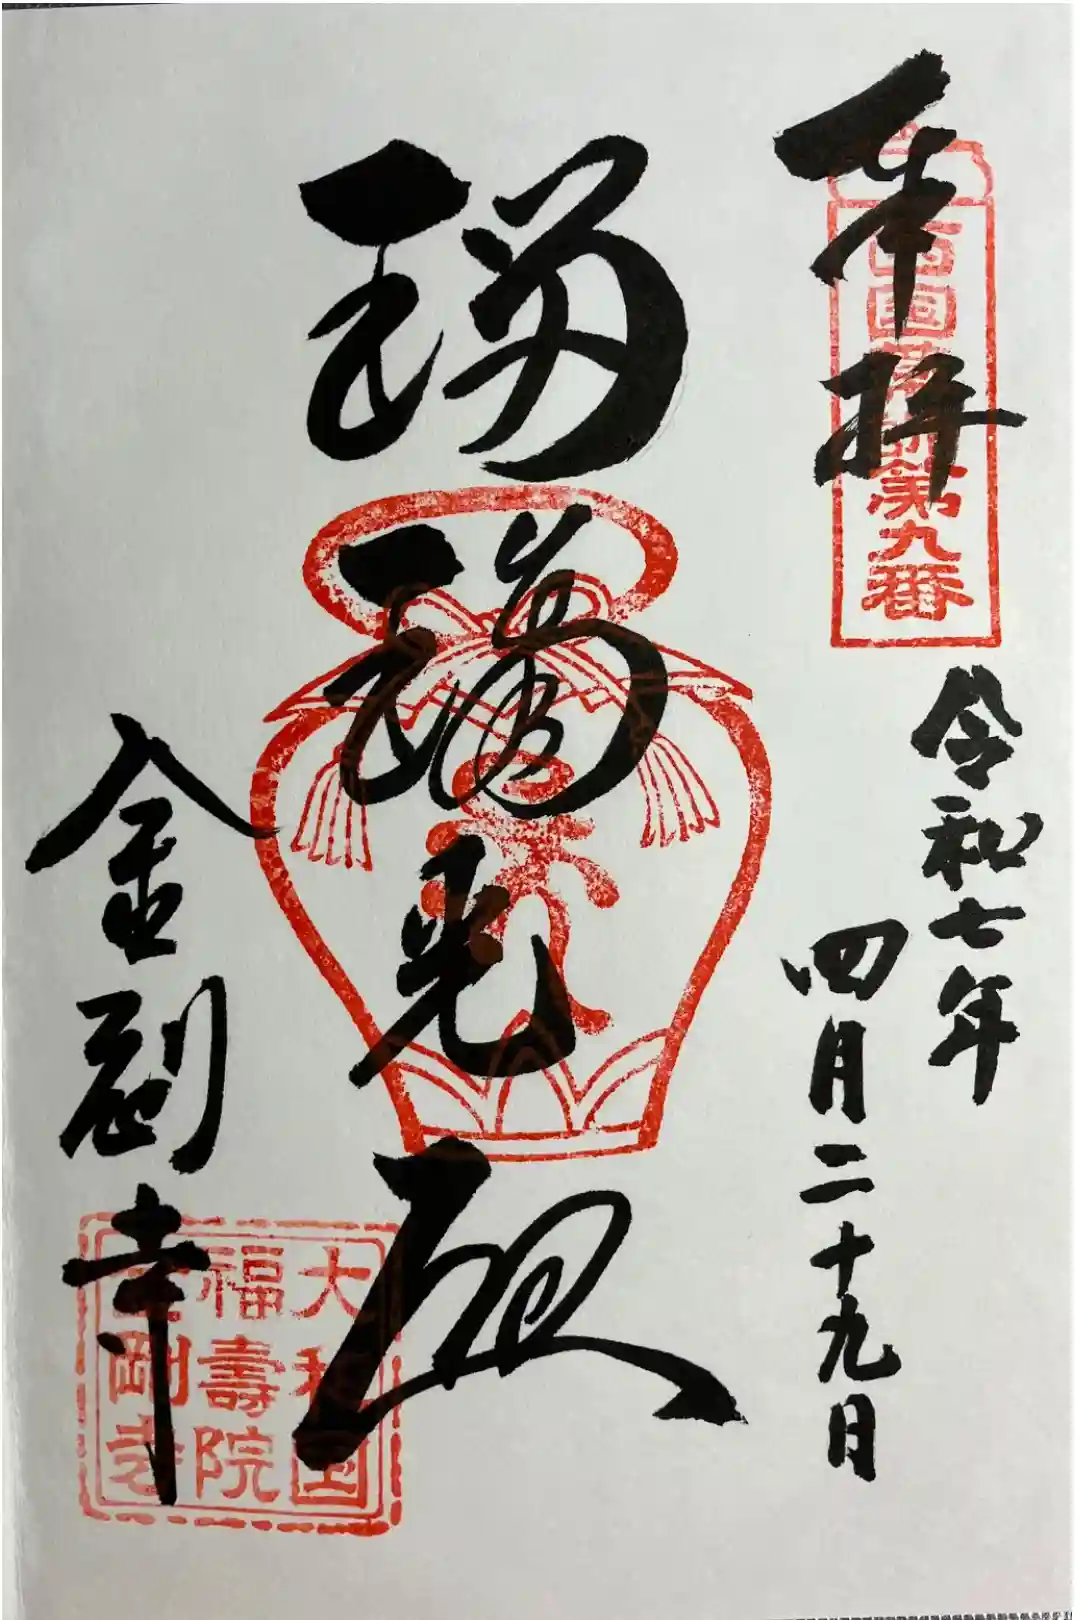 奉拝
西国薬師第九番
令和七年
四月二十九日
瑠璃光殿
金剛寺
大和国
福壽院
金剛寺